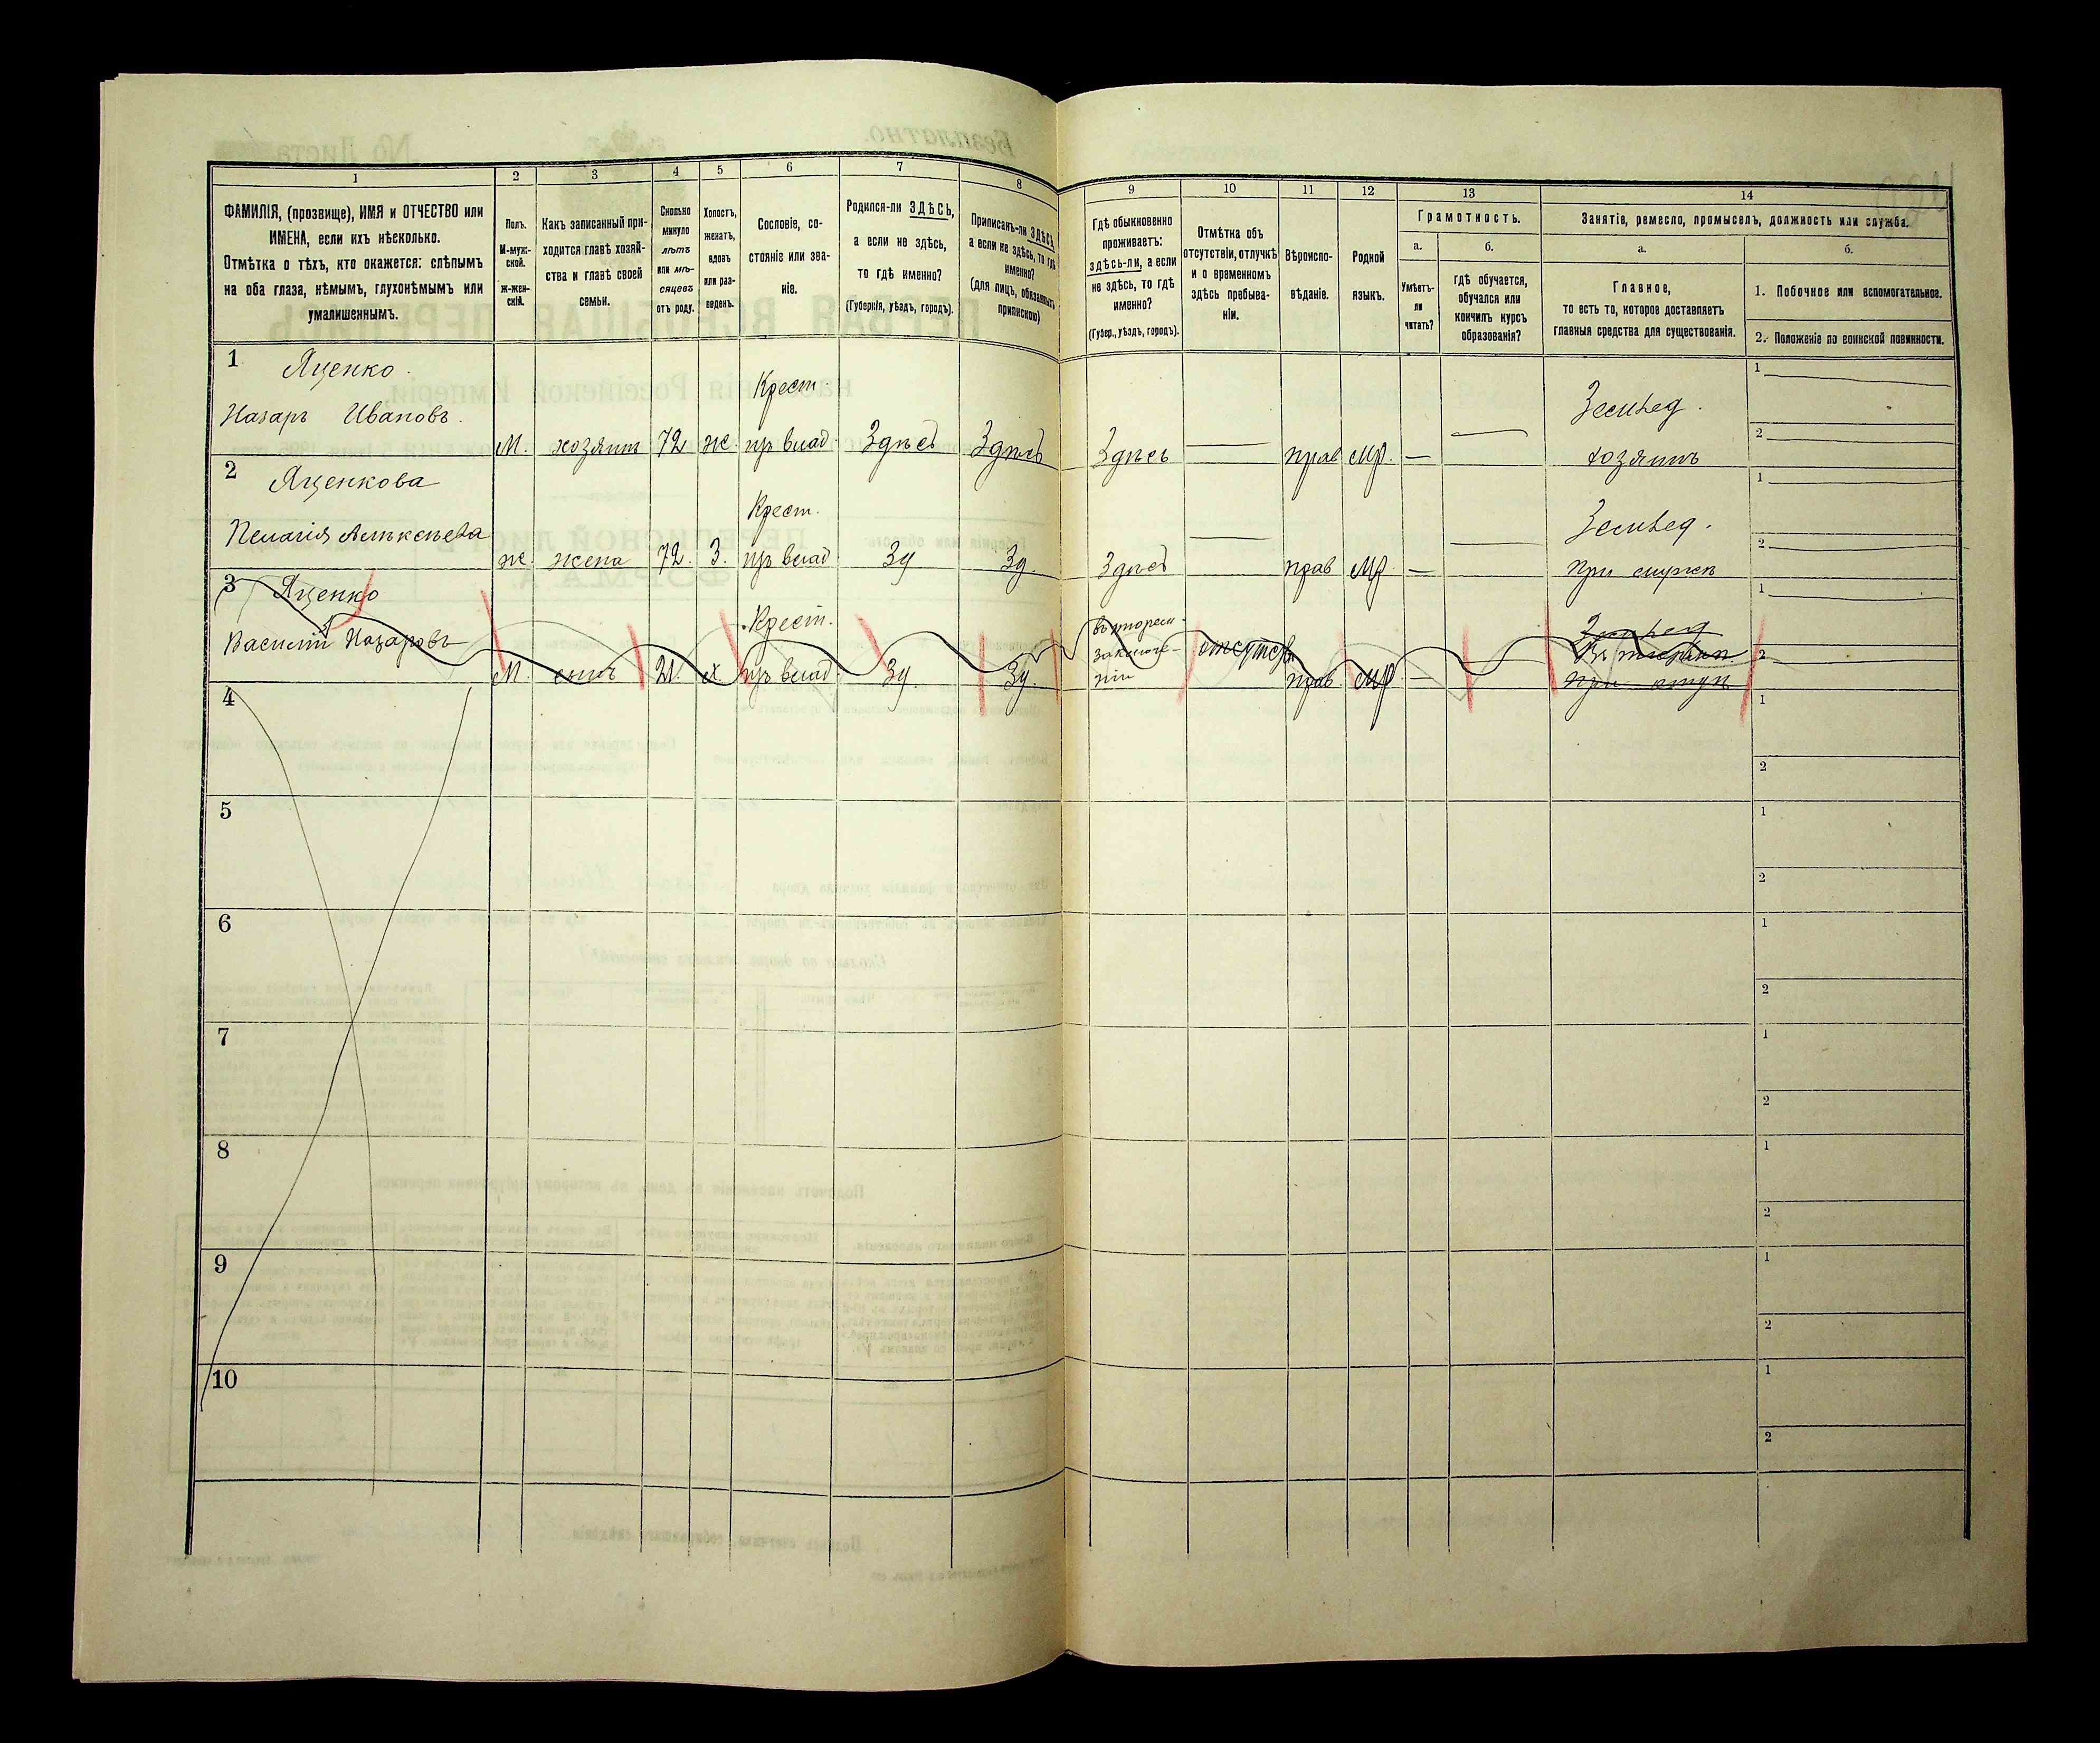 1 2 3 4 5 6 7 8 9 10 11 12 13 14
ФАМИЛІЯ, (прозвище), ИМЯ и ОТЧЕСТВО или
ИМЕНА, если ихъ нѣсколько.
Отмѣтка о тѣхъ, кто окажется: слѣпымъ
на оба глаза, нѣмымъ, глухонѣмымъ или
умалишеннымъ.
Полъ.
М-муж-
ской.
Ж-жен-
скій.
Какъ записанный при-
ходится главѣ хозяй-
ства и главѣ своей
семьи.
Сколько
минуло
лѣтъ
или мѣ-
сяцевъ
отъ роду.
Холостъ,
женатъ,
вдовъ
или раз-
веденъ.
Сословіе, со-
стояніе или зва-
ніе.
Родился-ли ЗДѢСЬ,
а если не здѣсь,
то гдѣ именно?
(Губернія, уѣздъ, городъ).
Приписанъ-ли ЗДѢСЬ,
а если не здѣсь, то гдѣ
именно?
(для лицъ, обязанныхъ
припискою)
Гдѣ обыкновенно
проживаетъ:
здѣсь-ли, а если
не здѣсь, то гдѣ
именно?
(Губер., уѣздъ, городъ).
Отмѣтка объ
отсутствіи, отлучкѣ
и о временномъ
здѣсь пребыва-
ніи.
Вѣроиспо-
вѣданіе.
Родной
языкъ.
Грамотность.
а.
Умѣетъ-
ли
читать?
б.
Гдѣ обучается,
обучался или
кончилъ курсъ
образованія?
Занятіе, ремесло, промыселъ, должность или служба.
а.
Главное,
то есть то, которое доставляетъ
главныя средства для существованія.
б.
1. Побочное или вспомогательное.
2. Положеніе по воинской повинности.
1 Яценко.
Крест.
Землед.
1
Назаръ Ивановъ.
М. хозяинъ 72 ж. пр влад Здѣсь Здѣсь Здѣсь — прав мр. — хозяинъ
2
2 Яценкова
Крест.
Землед.
1
Пелагія Алѣксѣева
ж. жена 72. З. пр влад Зд Зд. Здѣсь прав мр. — при мужѣ
2
3 Яценко
Крест.
Землед
1
Василій Назаровъ
М. сынъ 21. х. пр влад Зд. Зд.
въ тюрем-
заключе-
ніи
отсутств. прав. мр —
2
4 1
2
5 1
2
6 1
2
7 1
2
8 1
2
9 1
2
10 1
2